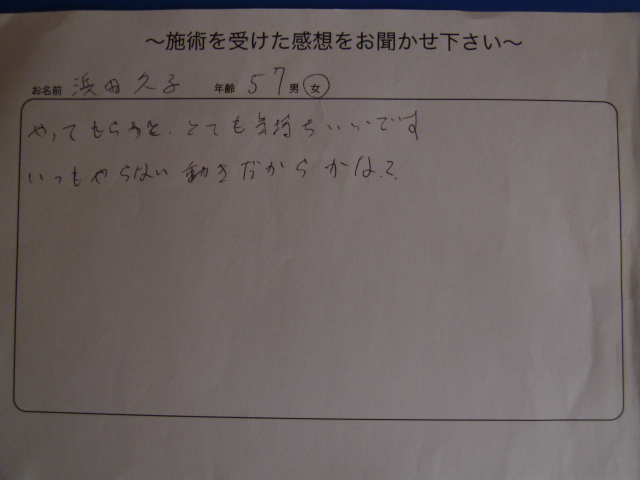 ～施術を受けた感想をお聞かせ下さい～
お名前 浜田久子 年齢 57 男 女
やってもらうと、とても気持ちいいです
いつもやらない動きだからかな?